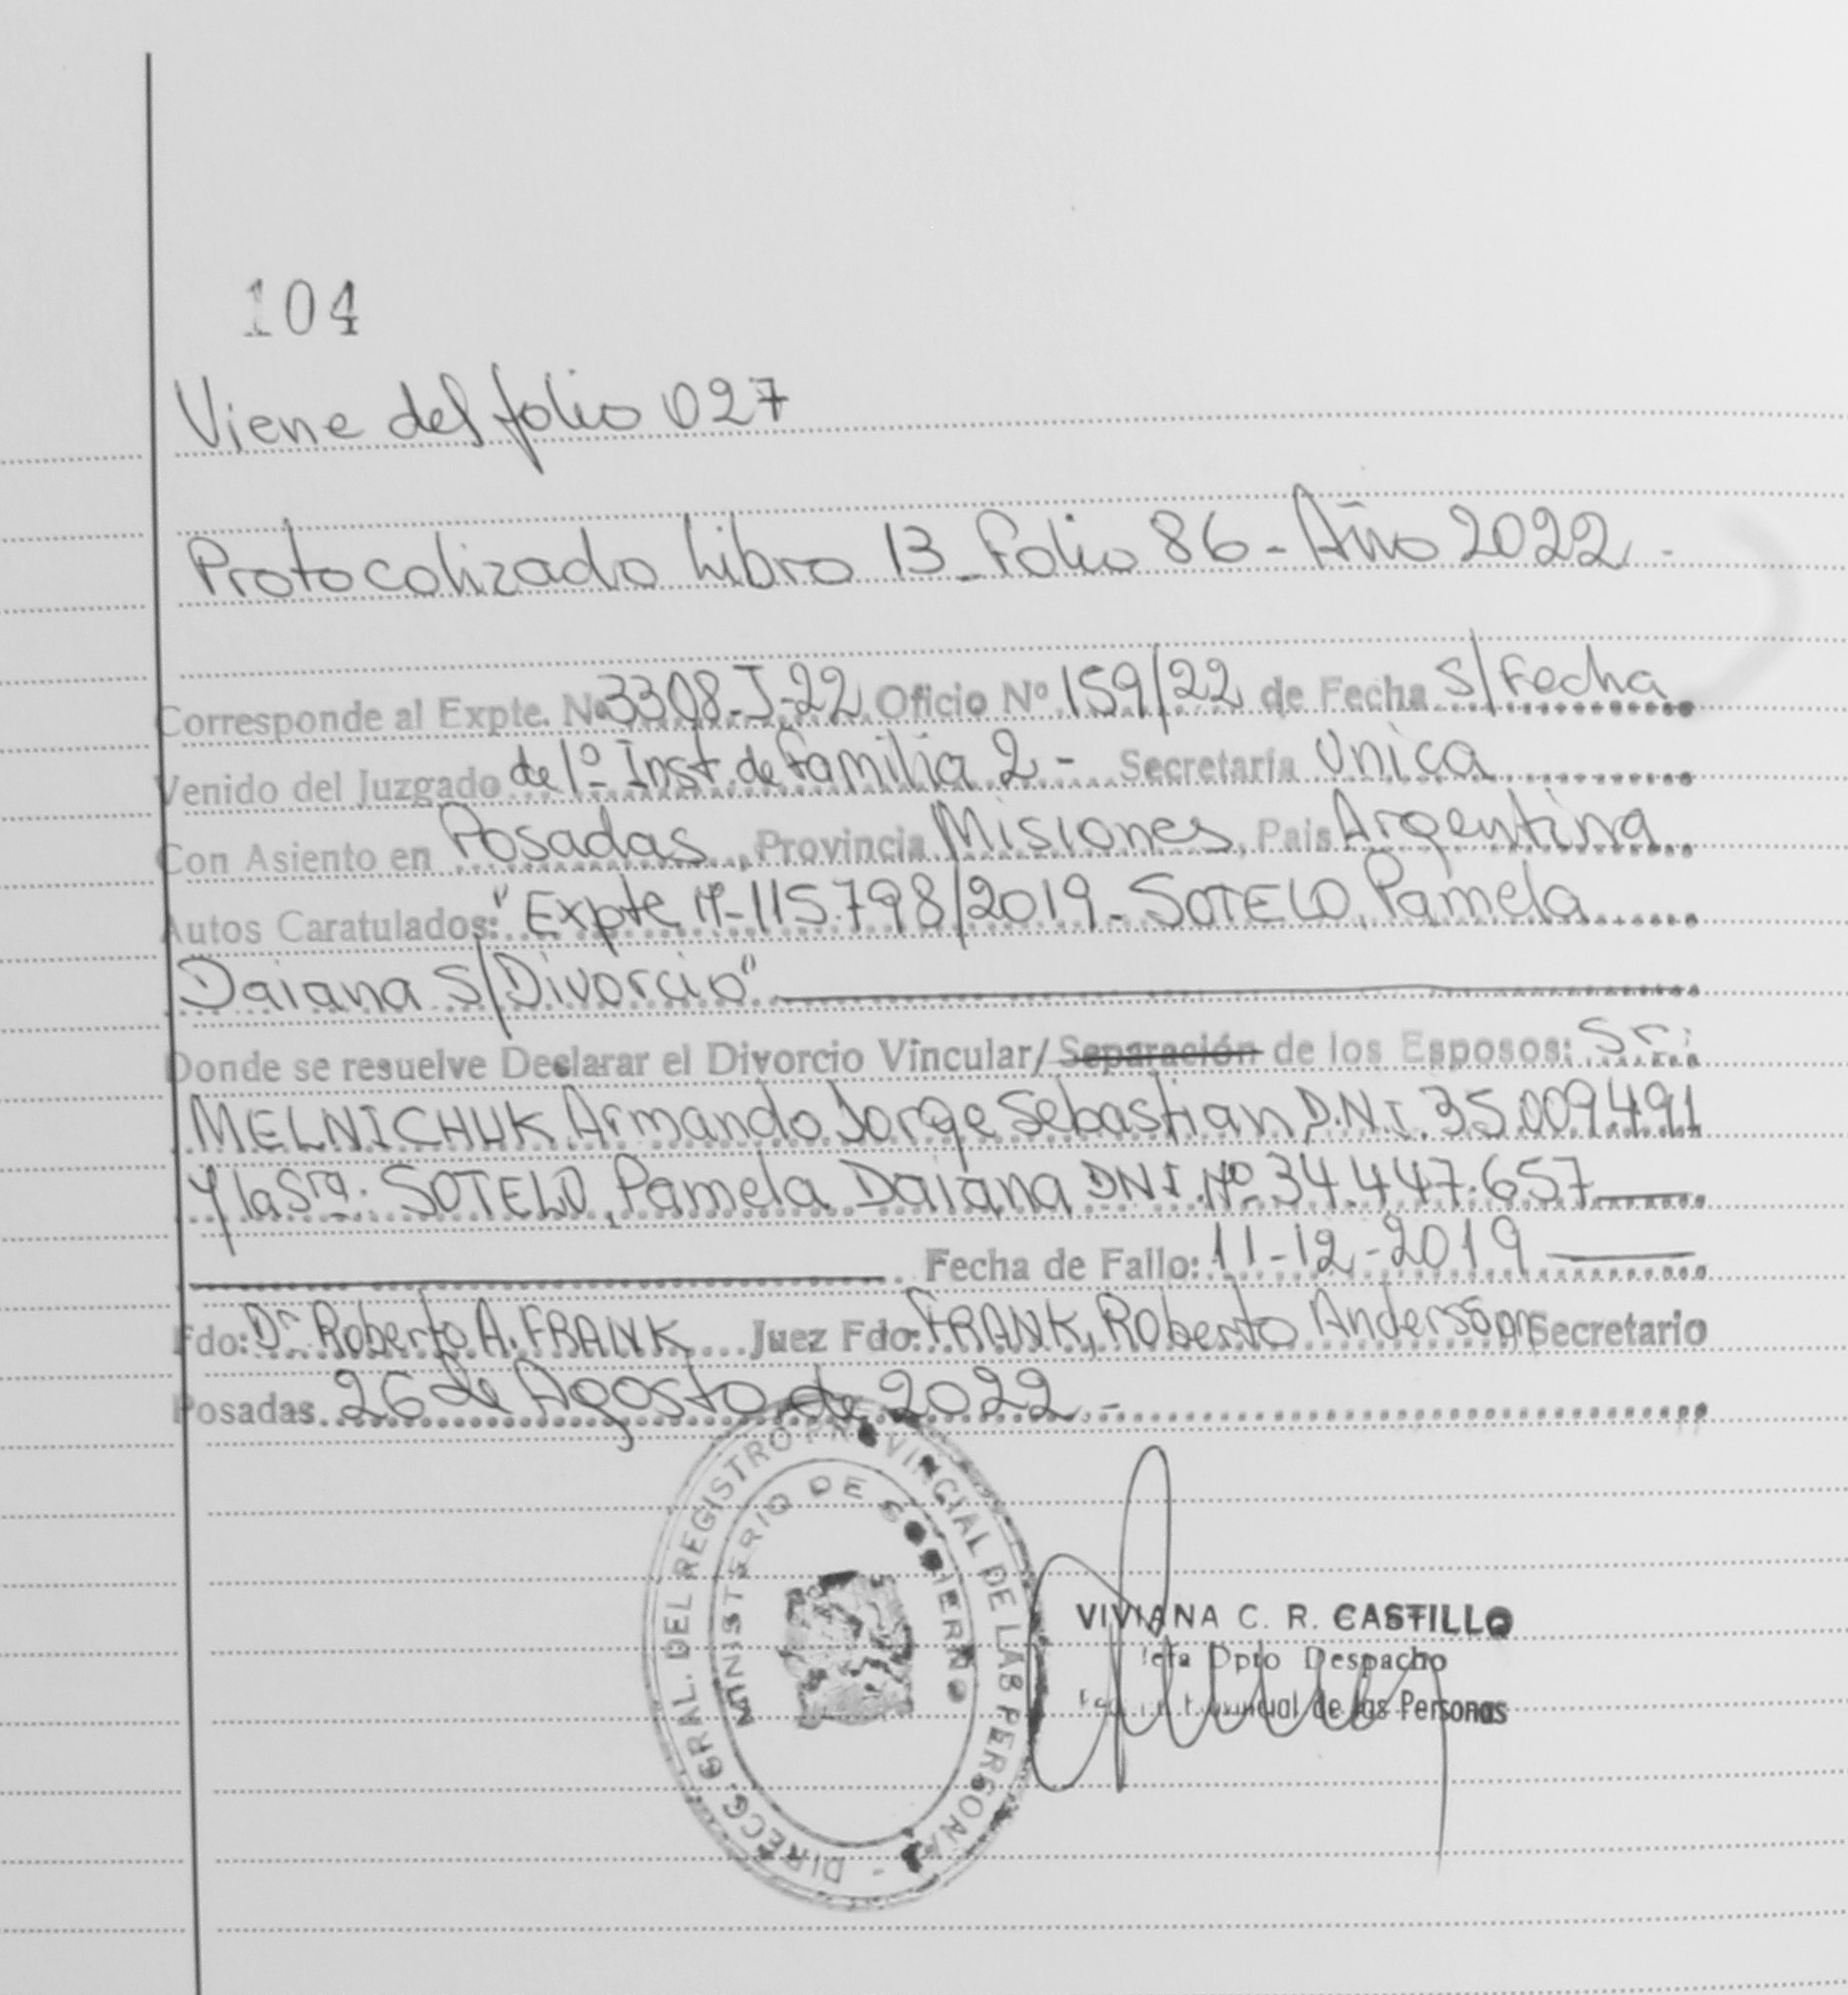 104
Viene del folio 027
Protocolizado Libro 13 - Folio 86 - Año 2022 -
Corresponde al Expte. Nº 3308-J-22 Oficio Nº 159/22 de Fecha S/Fecha
Venido del Juzgado de 1º Inst. de Familia 2 - Secretaría Unica
Con Asiento en Posadas, Provincia Misiones, Pais Argentina
Autos Caratulados: "Expte Nº-115.798/2019 - SOTELO, Pamela
Daiana S/Divorcio"
Donde se resuelve Declarar el Divorcio Vincular/ Separación de los Esposos: Sr:
MELNICHUK Armando Jorge Sebastian D.N.I. 35.009.491
Y la Sra: SOTELO, Pamela Daiana DNI. Nº 34.447.657
Fecha de Fallo: 11-12-2019
Fdo: Dr Roberto A. FRANK Juez Fdo: FRANK, Roberto Anderson Secretario
Posadas 26 de Agosto de 2022 -
DIRECC. GRAL. DEL REGISTRO PROVINCIAL DE LAS PERSONAS -
MINISTERIO DE GOBIERNO
VIVIANA C. R. CASTILLO
Jefa Dpto Despacho
Provincial de las Personas